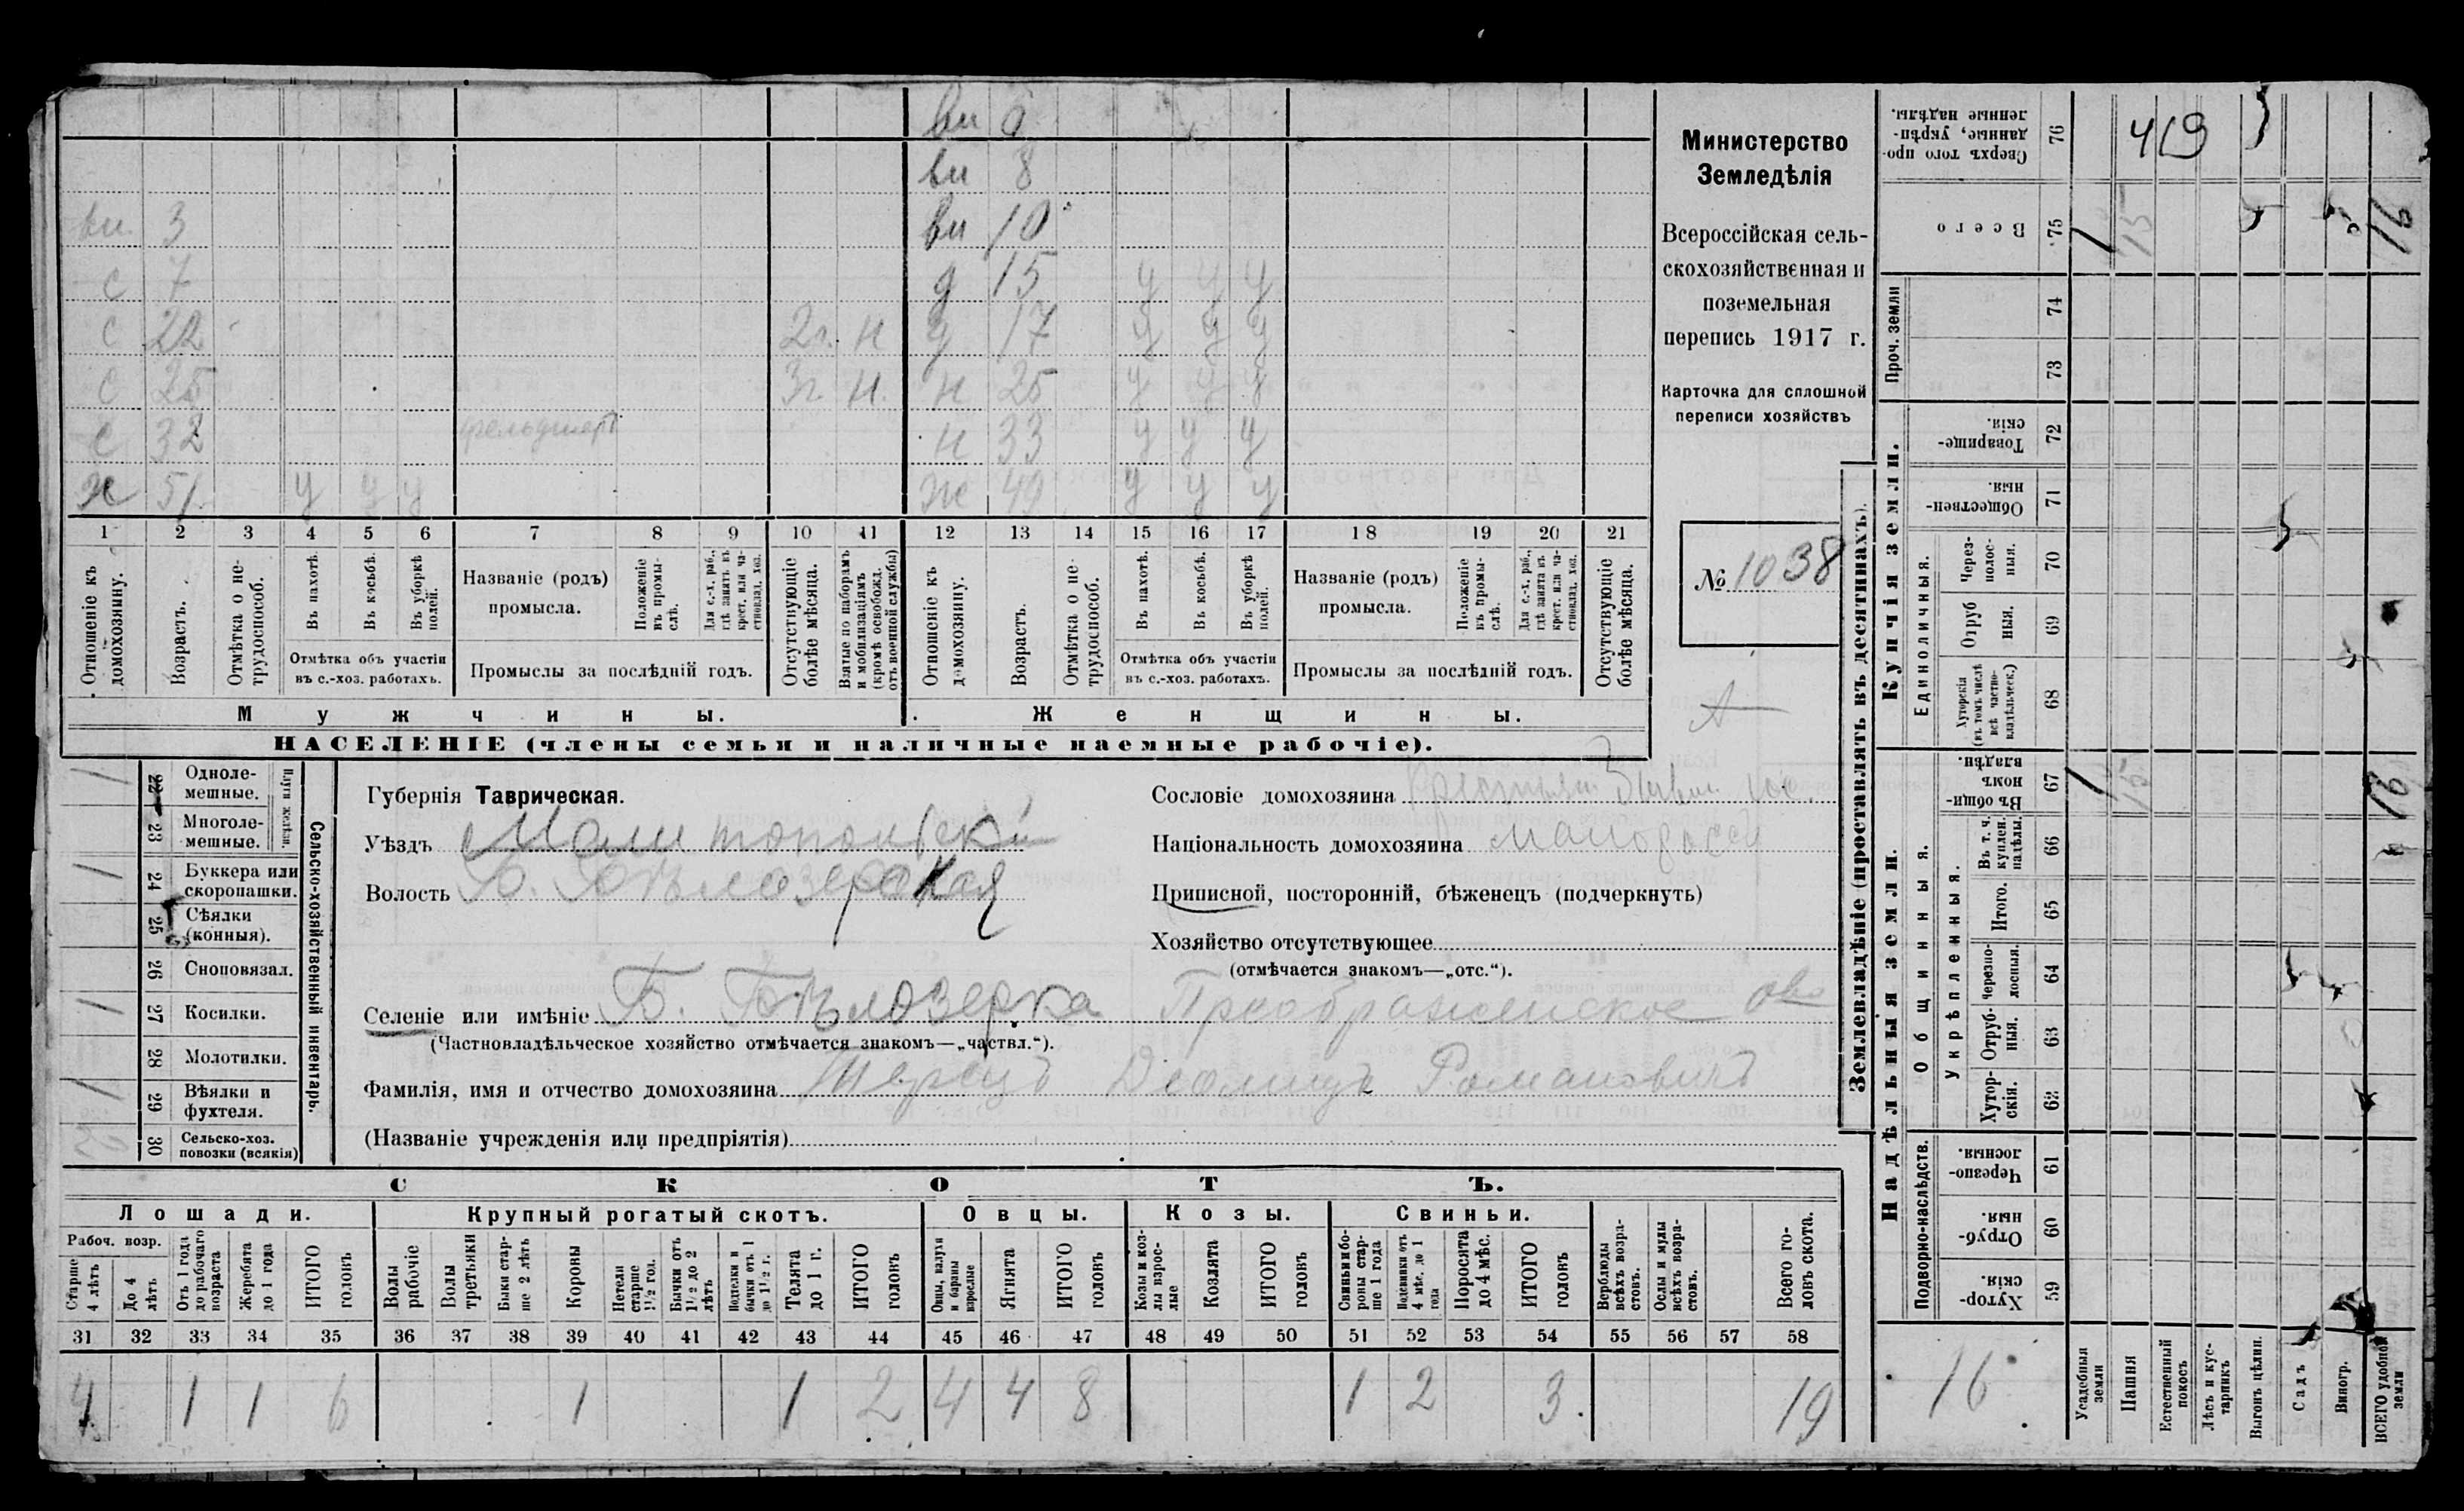 ви 6
ви 8
ви 3 ви 10
с 7 д 15 у у у
с 22 2г. н д 17 у у у
с 25 3г. н. н 25 у у у
с 32 фельдшеръ н 33 у у у
ж 51 у у у ж 49 у у у
1 2 3 4 5 6 7 8 9 10 11 12 13 14 15 16 17 18 19 20 21
Отношеніе къ домохозяину.
Возрастъ.
Отмѣтка о нетрудоспособ.
Въ пахотѣ.
Въ косьбѣ.
Въ уборкѣ полей.
Отмѣтка объ участіи
въ с.-хоз. работахъ.
Названіе (родъ)
промысла.
Положеніе въ промыслѣ.
Для с.-х. раб., гдѣ занятъ въ крест. или частновлад. хоз.
Промыслы за послѣдній годъ.
Отсутствующіе болѣе мѣсяца.
Взятые по наборамъ и мобилизаціямъ (кромѣ освобожд. отъ военной службы)
Отношеніе къ домохозяину.
Возрастъ.
Отмѣтка о нетрудоспособ.
Въ пахотѣ.
Въ косьбѣ.
Въ уборкѣ полей.
Отмѣтка объ участіи
въ с.-хоз. работахъ.
Названіе (родъ)
промысла.
Положеніе въ промыслѣ.
Для с.-х. раб., гдѣ занята въ крест. или частновлад. хоз.
Промыслы за послѣдній годъ.
Отсутствующіе болѣе мѣсяца.
Мужчины. Женщины.
НАСЕЛЕНІЕ (члены семьи и наличные наемные рабочіе).
Министерство
Земледѣлія
Всероссійская сель-
скохозяйственная и
поземельная
перепись 1917 г.
Карточка для сплошной
переписи хозяйствъ
№ 1038
А
22 Однолемешные.
23 Многолемешные.
24 Буккера или скоропашки.
25 Сѣялки (конныя).
26 Сноповязал.
27 Косилки.
28 Молотилки.
29 Вѣялки и фухтеля.
30 Сельско-хоз. повозки (всякія)
Сельско-хозяйственный инвентарь.
Губернія Таврическая.
Уѣздъ Мелитопольскій
Волость Б. Бѣлозерская
Селеніе или имѣніе Б. Бѣлозерка Преображенское
(Частновладѣльческое хозяйство отмѣчается знакомъ—„частвл.“).
Фамилія, имя и отчество домохозяина Романовичъ
(Названіе учрежденія или предпріятія)
Сословіе домохозяина
Національность домохозяина малоросс
Приписной, посторонній, бѣженецъ (подчеркнуть)
Хозяйство отсутствующее
(отмѣчается знакомъ—„отс.“).
СКОТЪ.
Лошади. Крупный рогатый скотъ. Овцы. Козы. Свиньи.
Рабоч. возр.
Старше 4 лѣтъ
До 4 лѣтъ
Отъ 1 года до рабочаго возраста
Жеребята до 1 года
ИТОГО головъ
Волы рабочіе
Волы третьяки
Быки старше 2 лѣтъ
Коровы
Нетели старше 1½ год.
Бычки отъ 1½ до 2 лѣтъ
Подтелки и бычки отъ 1 до 1½ г.
Телята до 1 г.
ИТОГО головъ
Овцы, валухи и бараны взрослые
Ягнята
ИТОГО головъ
Козы и козлы взрослые
Козлята
ИТОГО головъ
Свиньи и боровы старше 1 года
Подсвинки отъ 4 мѣс. до 1 года
Поросята до 4 мѣс.
ИТОГО головъ
Верблюды всѣхъ возрастовъ.
Ослы и мулы всѣхъ возрастовъ.
Всего головъ скота.
31 32 33 34 35 36 37 38 39 40 41 42 43 44 45 46 47 48 49 50 51 52 53 54 55 56 57 58
4 1 1 6 1 1 2 4 4 8 1 2 3. 19
Землевладѣніе (проставлять въ десятинахъ).
Сверхъ того проданные, укрѣпленные надѣлы. 76 419
Всего 75 1 15 16
Проч. земли 74
73
Купчія земли.
Товарищескія. 72
Общественныя. 71
Единоличныя.
Черезполосныя. 70
Отрубныя. 69
Хуторскія (въ томъ числѣ всѣ частновладѣльческ.) 68
Надѣльныя земли.
Общинныя.
Въ общинномъ владѣн. 67 1 15 16
Укрѣпленныя.
Въ т. ч. куплен. надѣлы. 66
Итого. 65
Черезполосныя. 64
Отрубныя. 63
Хуторскія. 62
Подворно-наслѣдств.
Черезполосныя. 61
Отрубныя. 60
Хуторскія. 59
16
Усадебныя земли
Пашня
Естественный покосъ
Лѣсъ и кустарникъ
Выгонъ цѣлин.
Садъ
Виногр.
ВСЕГО удобной земли